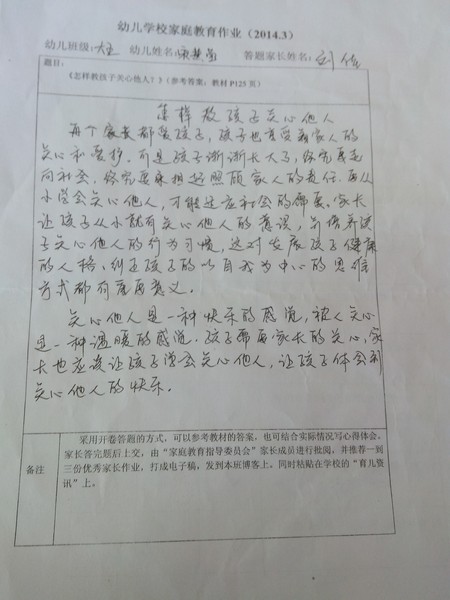 幼儿学校家庭教育作业（2014.3）
幼儿班级: 幼儿姓名: 答题家长姓名:刘佳
题目:
《怎样教孩子关心他人？》（参考答案，教材P125页）
怎样教孩子关心他人
每个家长都爱孩子，孩子也享受着家人的
关心和爱护。可是孩子渐渐长大了，终究要走
向社会，终究要承担起照顾家人的责任。要从
小学会关心他人，才能适应社会的发展。家长
让孩子从小就有关心他人的意识，并培养孩
子关心他人的行为习惯，这对发展孩子健康
的人格、纠正孩子的以自我为中心的思维
方式都有重要意义。
关心他人是一种快乐的感觉，被人关心
是一种温暖的感觉。孩子需要家长的关心，家
长也应该让孩子学会关心他人，让孩子体会到
关心他人的快乐。
采用开卷答题的方式，可以参考教材的答案，也可结合实际情况写心得体会。
家长答完题后上交，由“家庭教育指导委员会”家长成员进行批阅，并推荐一到
备注
三份优秀家长作业，打成电子稿，发到本班博客上。同时粘贴在学校的“育儿资
讯”上。